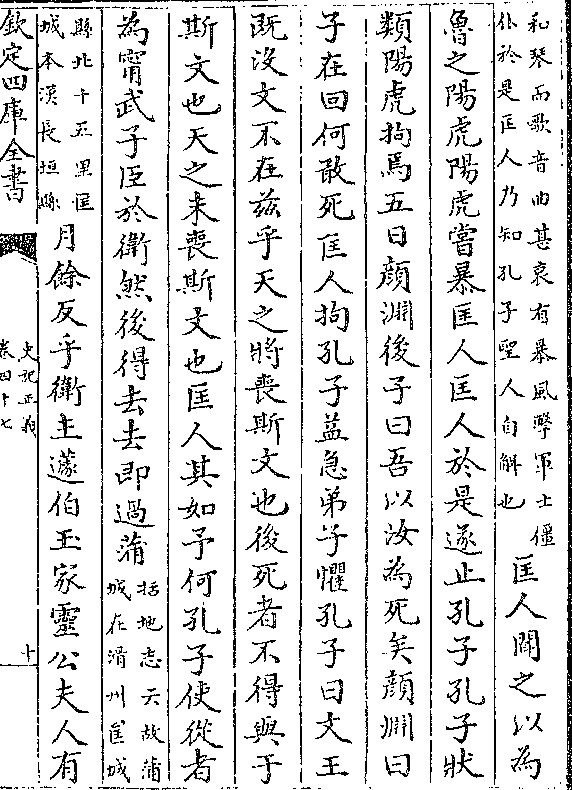 和琴而歌音曲甚哀有暴風擊軍士僵
仆於是匡人乃知孔子聖人自解也
匡人聞之以為
魯之陽虎陽虎嘗暴匡人匡人於是遂止孔子孔子狀
類陽虎拘焉五日顔淵後子曰吾以汝為死矣顔淵曰
子在回何敢死匡人拘孔子益急弟子懼孔子曰文王
既沒文不在兹乎天之將喪斯文也後死者不得與于
斯文也天之未喪斯文也匡人其如予何孔子使從者
為甯武子臣於衛然後得去去即過蒲
括地志云故蒲
城在滑州匡城
縣北十五里匡
城本漢長垣縣
月餘反乎衛主蘧伯玉家靈公夫人有
欽定四庫全書
史記正義
卷四十七
十